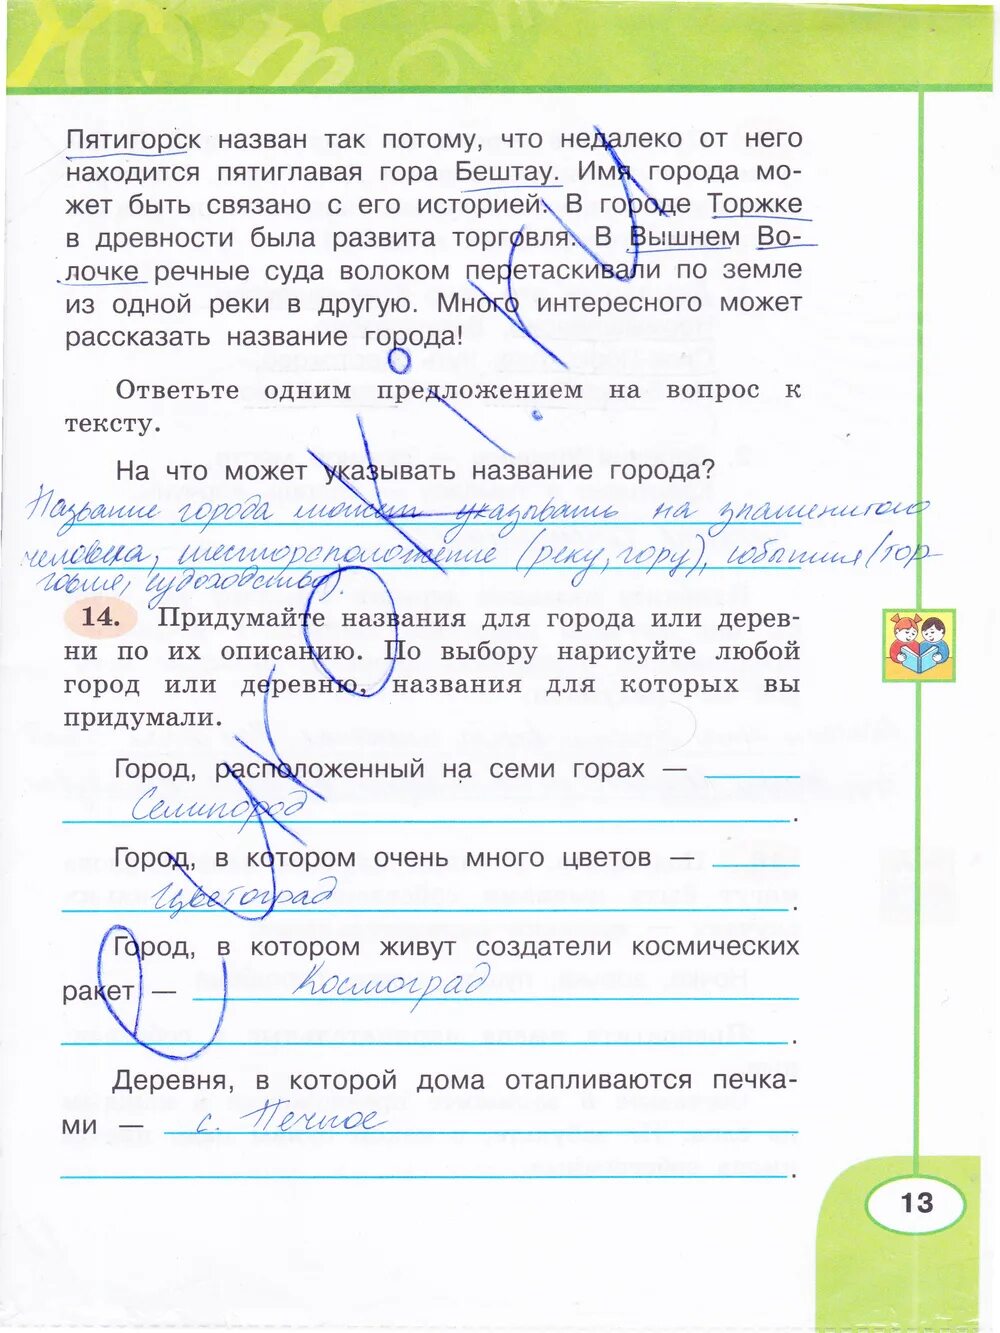 Пятигорск назван так потому, что недалеко от него
находится пятиглавая гора Бештау. Имя города мо-
жет быть связано с его историей. В городе Торжке
в древности была развита торговля. В Вышнем Во-
лочке речные суда волоком перетаскивали по земле
из одной реки в другую. Много интересного может
рассказать название города!
Ответьте одним предложением на вопрос к
тексту.
На что может указывать название города?
Название города может указывать на знаменитого
человека, месторасположение (реку, гору), события (тор-
говля, судоходство).
14. Придумайте названия для города или дерев-
ни по их описанию. По выбору нарисуйте любой
город или деревню, названия для которых вы
придумали.
Город, расположенный на семи горах —
Семигород.
Город, в котором очень много цветов —
Цветоград.
Город, в котором живут создатели космических
ракет — Космоград
.
Деревня, в которой дома отапливаются печка-
ми — с. Печное
.
13